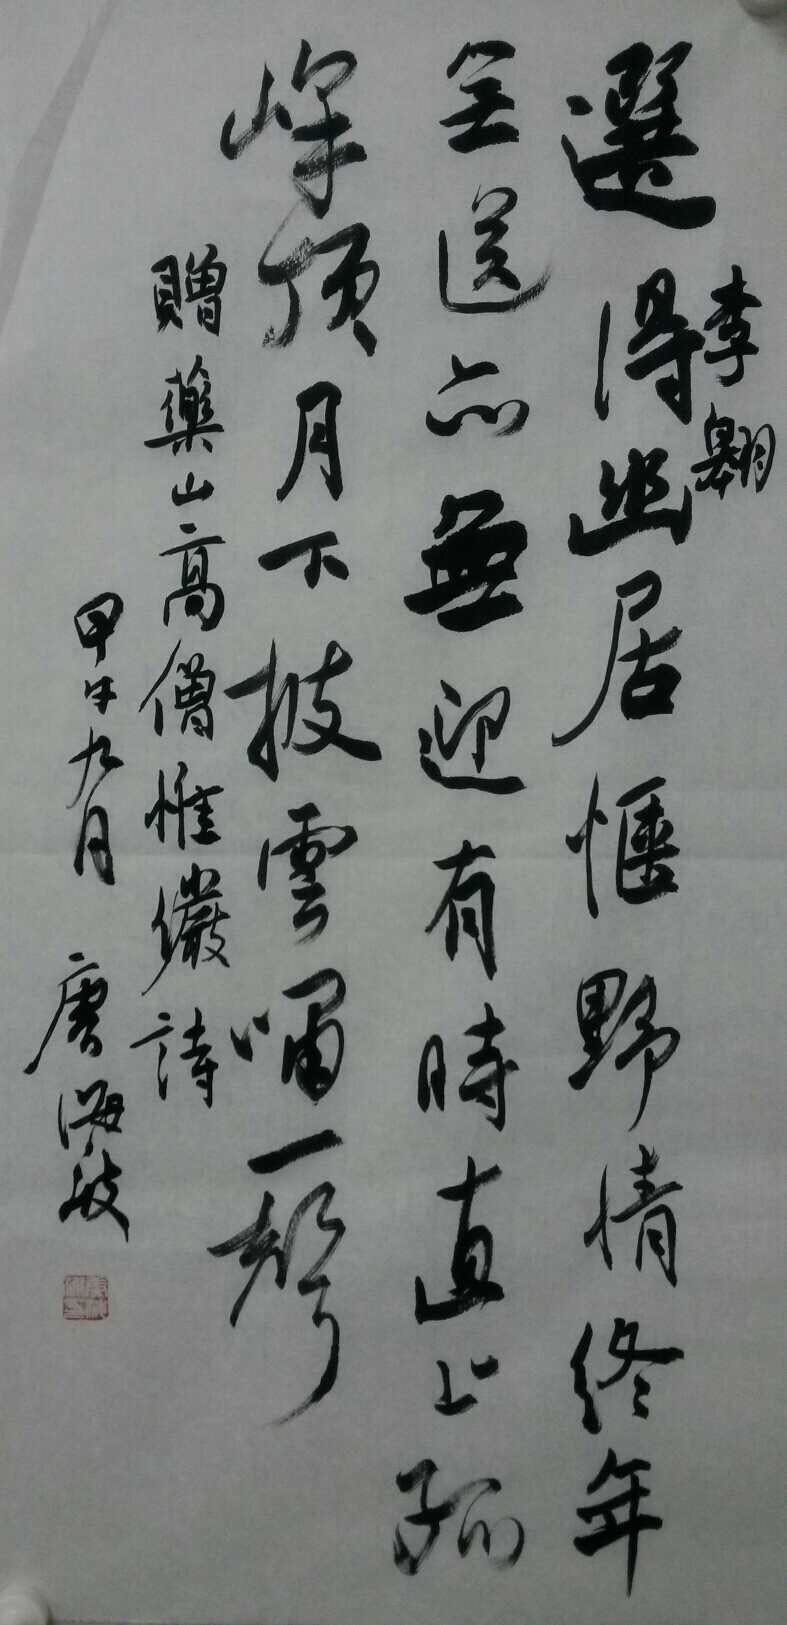 選得幽居愜野情終年
李翱
無送亦無迎有時直上孤
峰頂月下披雲嘯一聲
贈藥山高僧惟儼詩
甲午九月 唐海波